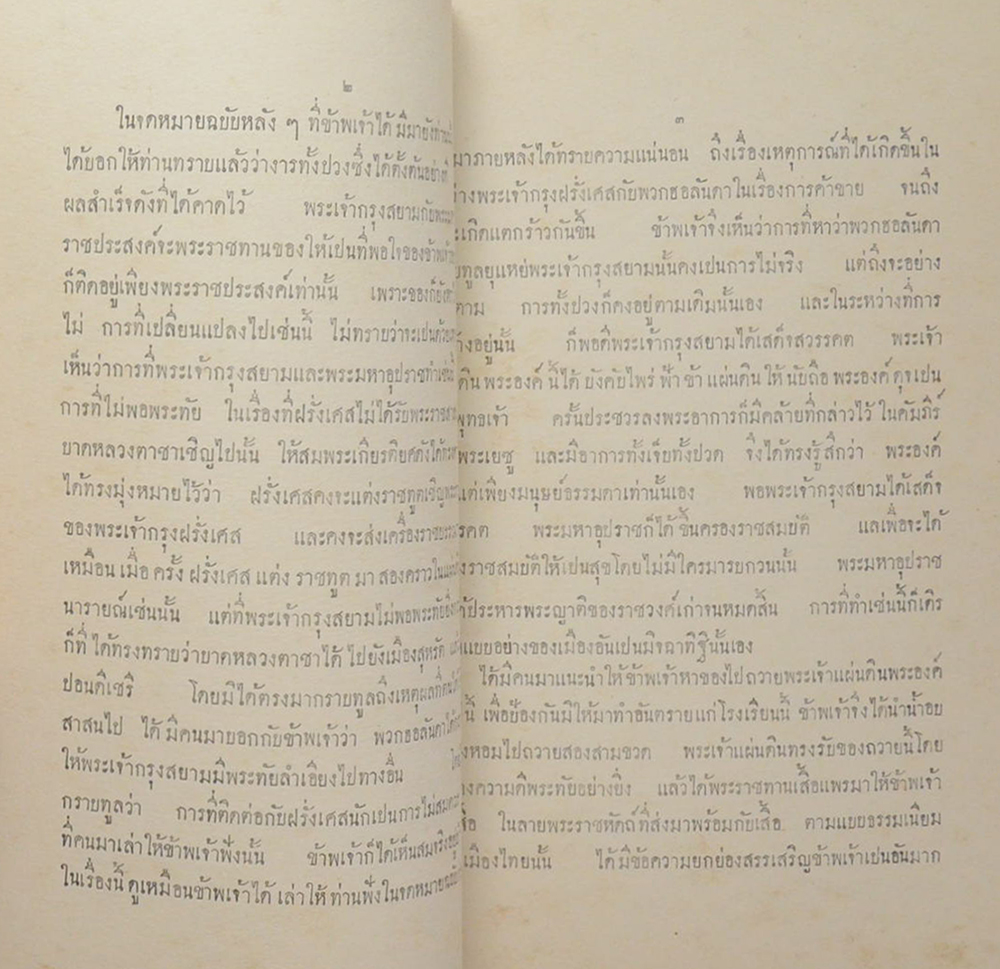 ๒
ในจดหมายฉบับหลัง ๆ ที่ข้าพเจ้าได้มีมายังท่าน
ได้บอกให้ท่านทราบแล้วว่างารทั้งปวงซึ่งได้ตั้งต้นอย่าง
ผลสำเร็จดังที่ได้คาดไว้ พระเจ้ากรุงสยามกับพระมหา
ราชประสงค์จะพระราชทานของให้เปนที่พอใจของข้าพเจ้า
ก็ติดอยู่เพียงพระราชประสงค์เท่านั้น เพราะของก็ยัง
ไม่ การที่เปลี่ยนแปลงไปเช่นนี้ ไม่ทราบว่าจะเปนด้วย
เห็นว่าการที่พระเจ้ากรุงสยามและพระมหาอุปราชทำเช่นนี้
การที่ไม่พอพระทัย ในเรื่องที่ฝรั่งเศสไม่ได้รับพระราช
บาดหลวงตาชาเชิญไปนั้น ให้สมพระเกียรติยศดังได้
ได้ทรงมุ่งหมายไว้ว่า ฝรั่งเศสคงจะแต่งราชทูตเชิญ
ของพระเจ้ากรุงฝรั่งเศส และคงจะส่งเครื่องราชบรรณา
เหมือนเมื่อครั้งฝรั่งเศสแต่งราชทูตมาสองคราวในแผ่น
นารายณ์เช่นนั้น แต่ที่พระเจ้ากรุงสยามไม่พอพระทัยยิ่ง
ก็ที่ได้ทรงทราบว่าบาดหลวงตาชาได้ไปยังเมืองสุหรัต
ปอนดีเชรี โดยมิได้ตรงมากราบทูลถึงเหตุผลที่
สาสนไป ได้มีคนมาบอกกับข้าพเจ้าว่า พวกฮอลันดาได้
ให้พระเจ้ากรุงสยามมีพระทัยลำเอียงไปทางอื่น โดย
กราบทูลว่า การที่ติดต่อกับฝรั่งเศสนักเปนการไม่สมควร
ที่คนมาเล่าให้ข้าพเจ้าฟังนั้น ข้าพเจ้าก็ได้เห็นสมจริงอยู่
ในเรื่องนี้ ดูเหมือนข้าพเจ้าได้เล่าให้ท่านฟังในจดหมายฉบับ
๓
มาภายหลังได้ทราบความแน่นอน ถึงเรื่องเหตุการณ์ที่ได้เกิดขึ้นใน
ว่างพระเจ้ากรุงฝรั่งเศสกับพวกฮอลันดาในเรื่องการค้าขาย จนถึง
เกิดแตกร้าวกันขึ้น ข้าพเจ้าจึงเห็นว่าการที่หาว่าพวกฮอลันดา
ทูลยุแหย่พระเจ้ากรุงสยามนั้นคงเปนการไม่จริง แต่ถึงจะอย่าง
ตาม การทั้งปวงก็คงอยู่ตามเดิมนั้นเอง และในระหว่างที่การ
ค้างอยู่นั้น ก็พอดีพระเจ้ากรุงสยามได้เสด็จสวรรคต พระเจ้า
ดินพระองค์นี้ได้บังคับไพร่ฟ้าข้าแผ่นดินให้นับถือพระองค์ดุจเปน
พุทธเจ้า ครั้นประชวรลงพระอาการก็มีคล้ายที่กล่าวไว้ในคัมภีร์
พระเยซู และมีอาการทั้งเจ็บทั้งปวด จึงได้ทรงรู้สึกว่า พระองค์
แต่เพียงมนุษย์ธรรมดาเท่านั้นเอง พอพระเจ้ากรุงสยามได้เสด็จ
รคต พระมหาอุปราชก็ได้ขึ้นครองราชสมบัติ แลเพื่อจะได้
ราชสมบัติให้เปนสุขโดยไม่มีใครมารบกวนนั้น พระมหาอุปราช
ประหารพระญาติของราชวงศ์เก่าจนหมดสิ้น การที่ทำเช่นนี้ก็เดิร
แบบอย่างของเมืองอันเปนมิจฉาทิฐินั้นเอง
ได้มีคนมาแนะนำให้ข้าพเจ้าหาของไปถวายพระเจ้าแผ่นดินพระองค์
นี้ เพื่อป้องกันมิให้มาทำอันตรายแก่โรงเรียนนี้ ข้าพเจ้าจึงได้นำน้ำอบ
หอมไปถวายสองสามขวด พระเจ้าแผ่นดินทรงรับของถวายนี้โดย
ความดีพระทัยอย่างยิ่ง แล้วได้พระราชทานเสื้อแพรมาให้ข้าพเจ้า
ในลายพระราชหัตถ์ที่ส่งมาพร้อมกับเสื้อ ตามแบบธรรมเนียม
เมืองไทยนั้น ได้มีข้อความยกย่องสรรเสริญข้าพเจ้าเปนอันมาก